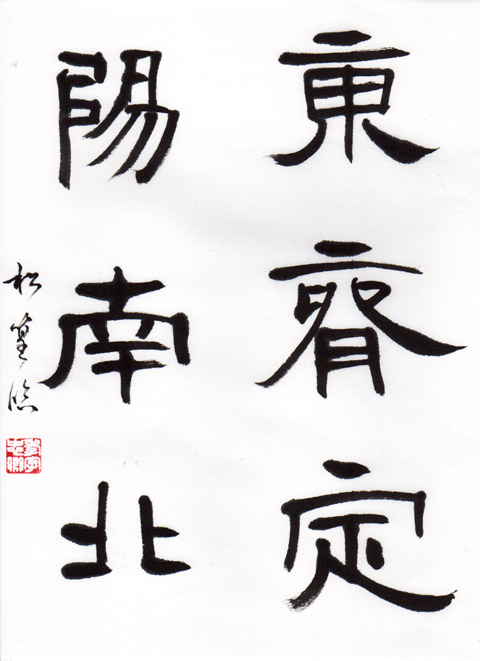 東齊定
陽南北
松篁臨